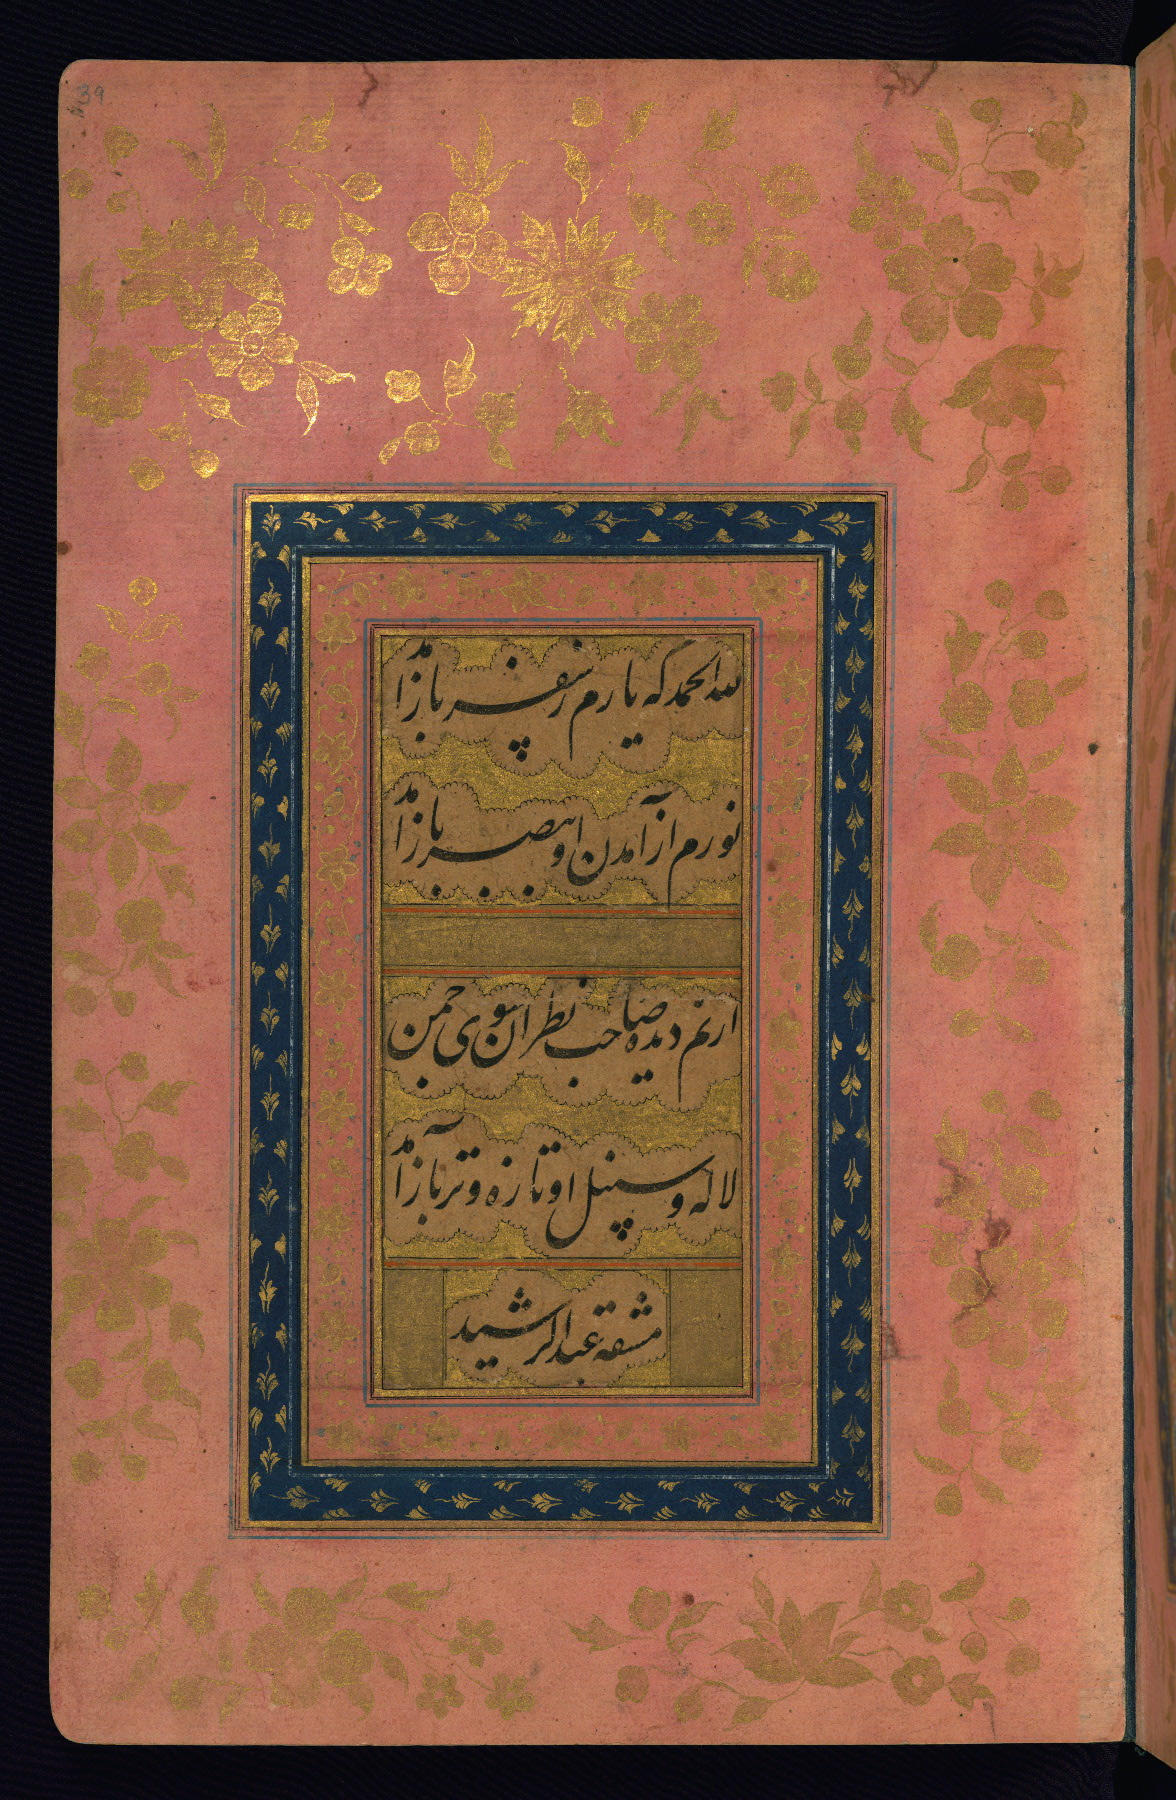 39
لله الحمد که یارم ز سفر باز آمد
نورم از آمدن او ببصر باز آمد
از نم دیده صاحب نظران سوی چمن
لاله و سنبل او تازه و تر باز آمد
مشقه عبد الرشید